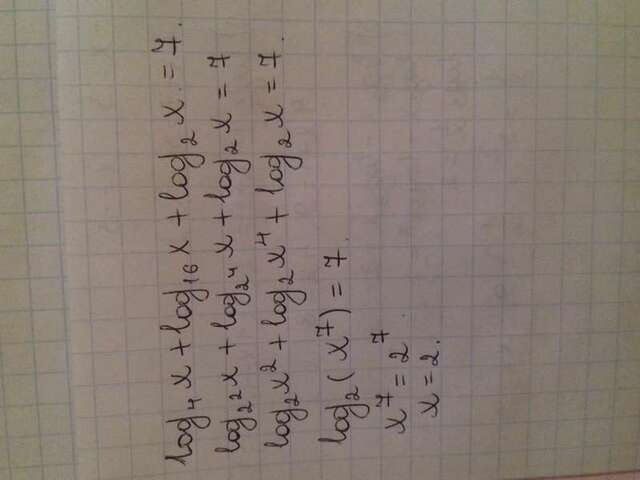 log₄x + log₁₆x + log₂x = 7.
log₂²x + log₂⁴x + log₂x = 7
log₂x² + log₂x⁴ + log₂x = 7.
log₂(x⁷) = 7.
x⁷ = 2⁷.
x = 2.